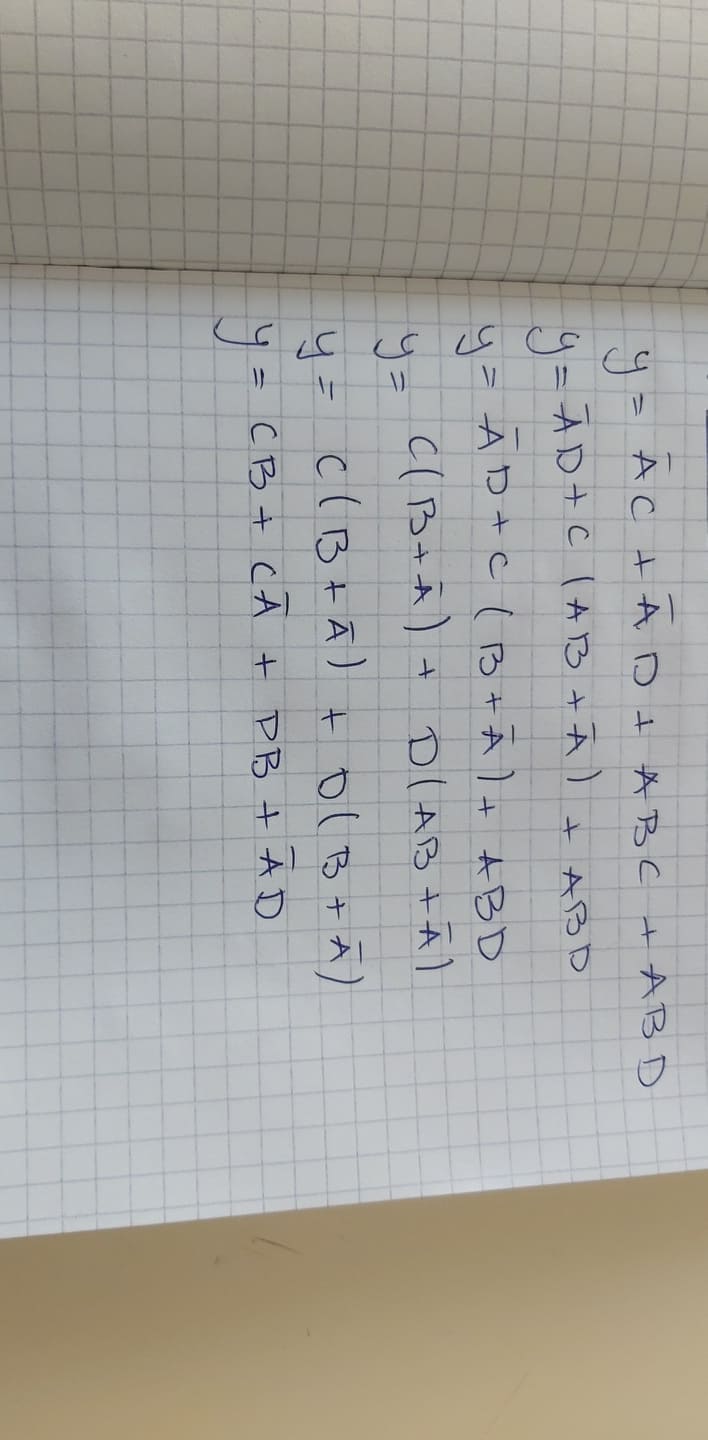 y = A̅C + A̅D + ABC + ABD
y = A̅D + C(AB + A̅) + ABD
y = A̅D + C(B + A̅) + ABD
y = C(B + A̅) + D(AB + A̅)
y = C(B + A̅) + D(B + A̅)
y = CB + CA̅ + DB + A̅D